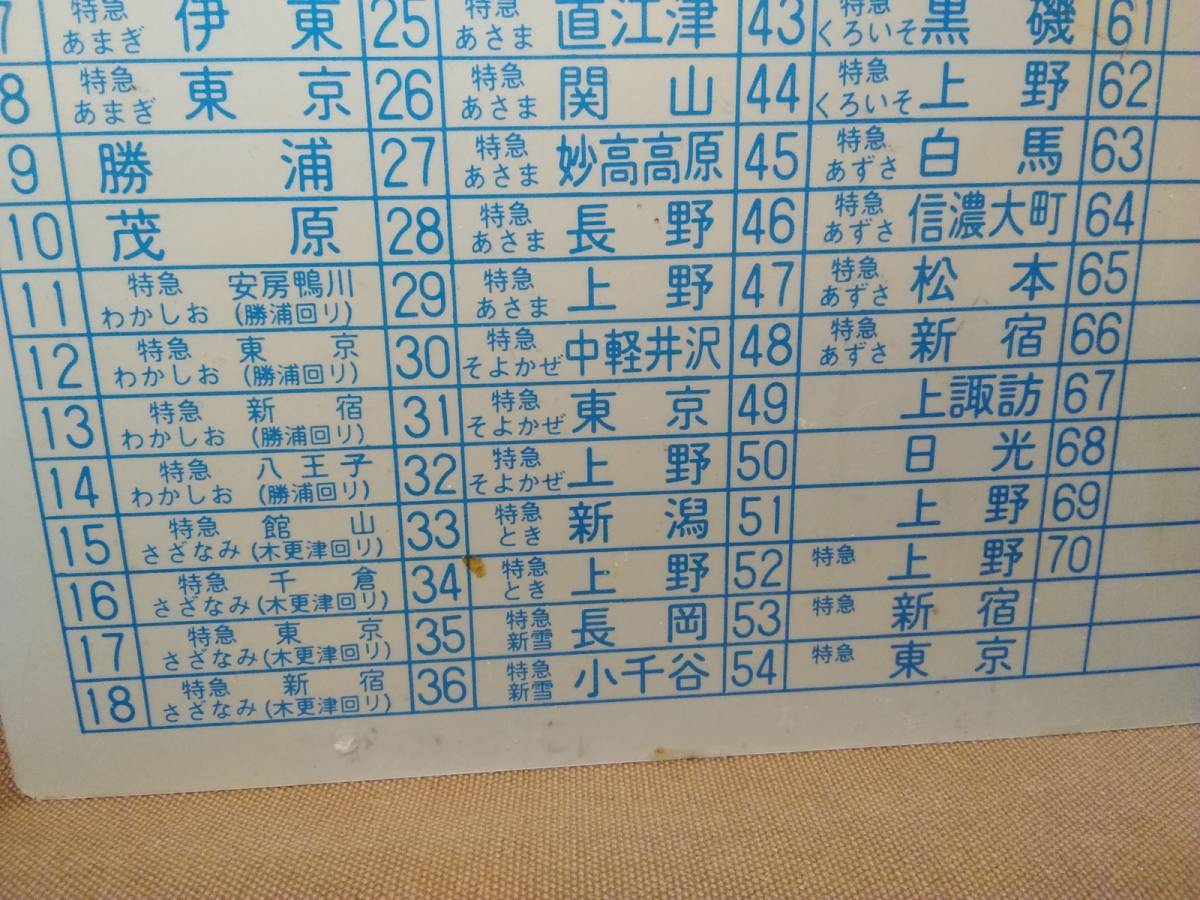 7 特急 あまぎ 伊東 25 特急 あさま 直江津 43 特急 くろいそ 黒磯 61
8 特急 あまぎ 東京 26 特急 あさま 関山 44 特急 くろいそ 上野 62
9 勝浦 27 特急 あさま 妙高高原 45 特急 あずさ 白馬 63
10 茂原 28 特急 あさま 長野 46 特急 あずさ 信濃大町 64
11 特急 わかしお 安房鴨川 (勝浦回り) 29 特急 あさま 上野 47 特急 あずさ 松本 65
12 特急 わかしお 東京 (勝浦回り) 30 特急 そよかぜ 中軽井沢 48 特急 あずさ 新宿 66
13 特急 わかしお 新宿 (勝浦回り) 31 特急 そよかぜ 東京 49 上諏訪 67
14 特急 わかしお 八王子 (勝浦回り) 32 特急 そよかぜ 上野 50 日光 68
15 特急 さざなみ 館山 (木更津回り) 33 特急 とき 新潟 51 上野 69
16 特急 さざなみ 千倉 (木更津回り) 34 特急 とき 上野 52 特急 上野 70
17 特急 さざなみ 東京 (木更津回り) 35 特急 新雪 長岡 53 特急 新宿
18 特急 さざなみ 新宿 (木更津回り) 36 特急 新雪 小千谷 54 特急 東京